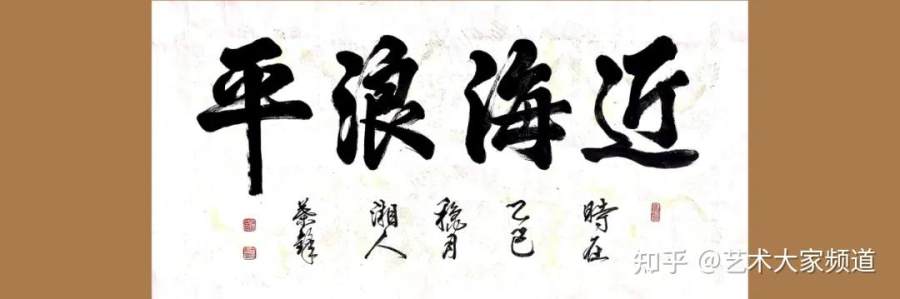 近海浪平
時在
乙巳
月
湘人
知乎 @艺术大家频道